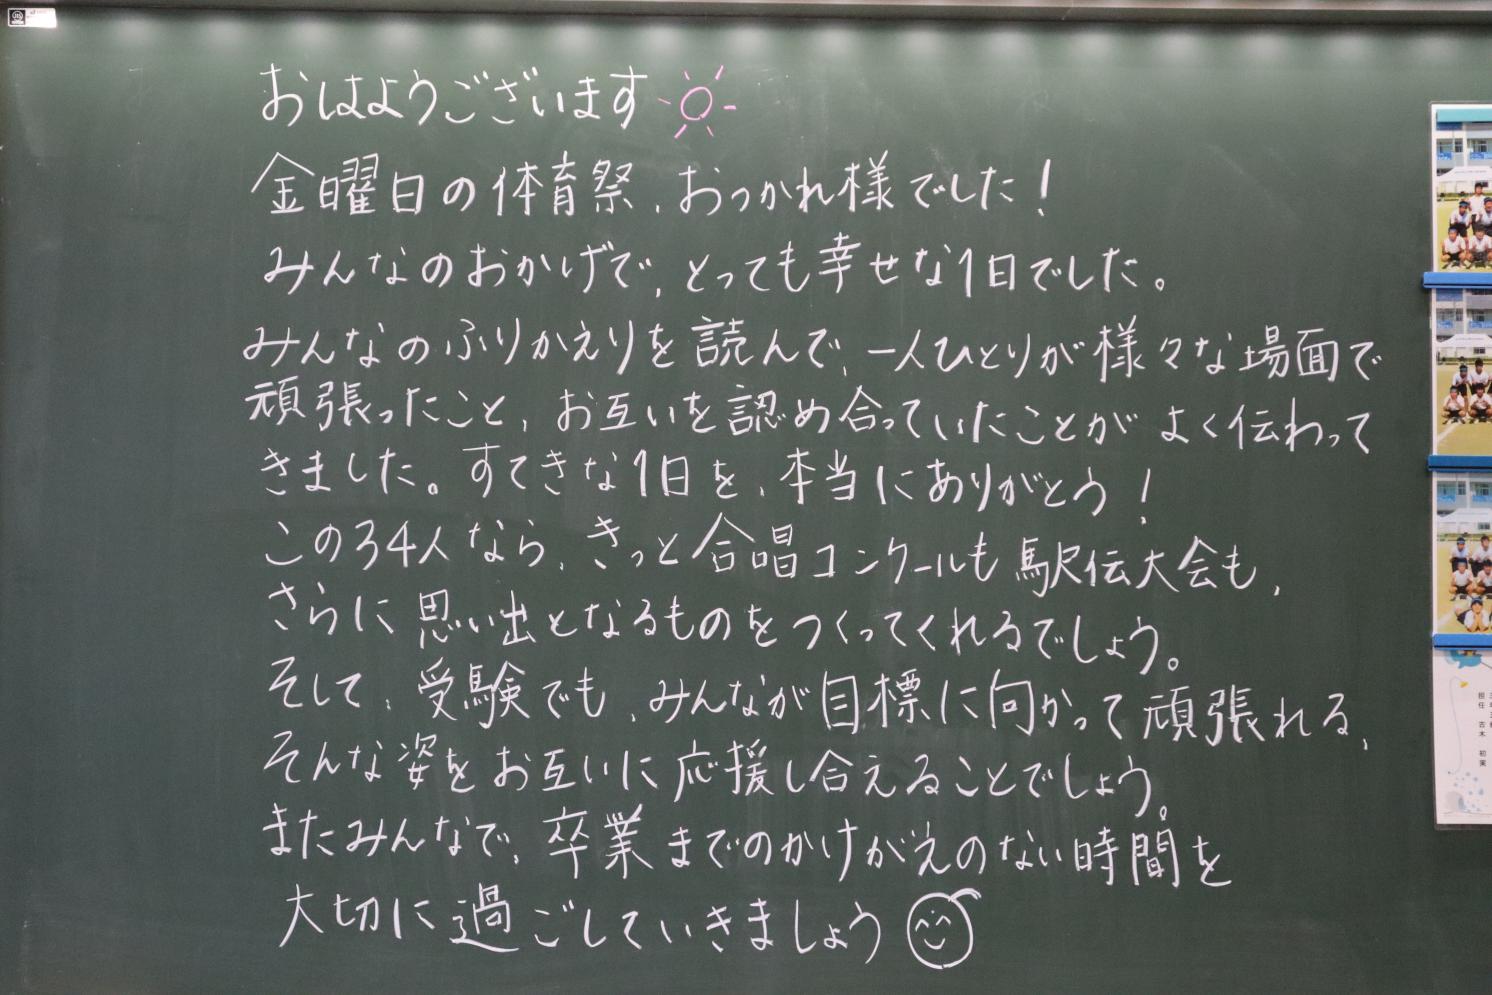 おはようございます
金曜日の体育祭、おつかれ様でした!
みんなのおかげで、とっても幸せな1日でした。
みんなのふりかえりを読んで、一人ひとりが様々な場面で
頑張ったこと、お互いを認め合っていたことがよく伝わって
きました。すてきな1日を、本当にありがとう!
この34人なら、きっと合唱コンクールも駅伝大会も、
さらに思い出となるものをつくってくれるでしょう。
そして、受験でも、みんなが目標に向かって頑張れる、
そんな姿をお互いに応援し合えることでしょう。
またみんなで、卒業までのかけがえのない時間を
大切に過ごしていきましょう
担任 吉木 初実